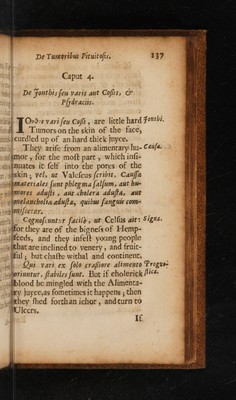 De Tumoribus Pituitosis. 137
Caput 4.
De Jonthis; seu varis aut Cossis, &
Psydraciis.
IOnthi vari seu Cossi, are little hard
Tumors on the skin of the face,
curdled up of an hard thick juyce.
They arise from an alimentary hu-
mor, for the most part, which insi-
nuates it self into the pores of the
skin; vel, ut Valescus scribit. Causa
materiales sunt phlegma salsum, aut hu-
mores adusti, aut cholera adusta, aut
melancholia adusta, quibus sanguis com-
miscetur.
Cognoscuntur facile, ut Celsus ait:
for they are of the bigness of Hemp-
seeds, and they infest young people
that are inclined to venery, and fruit-
ful; but chaste withal and continent.
Qui vari ex solo crassiore alimento
oriuntur, stabiles sunt. But if cholerick
blood be mingled with the Alimenta-
ry juyce, as sometimes it happens; then
they shed forth an ichor, and turn to
Ulcers.
If
Jonthi.
Causa.
Signa.
Progno-
stica.